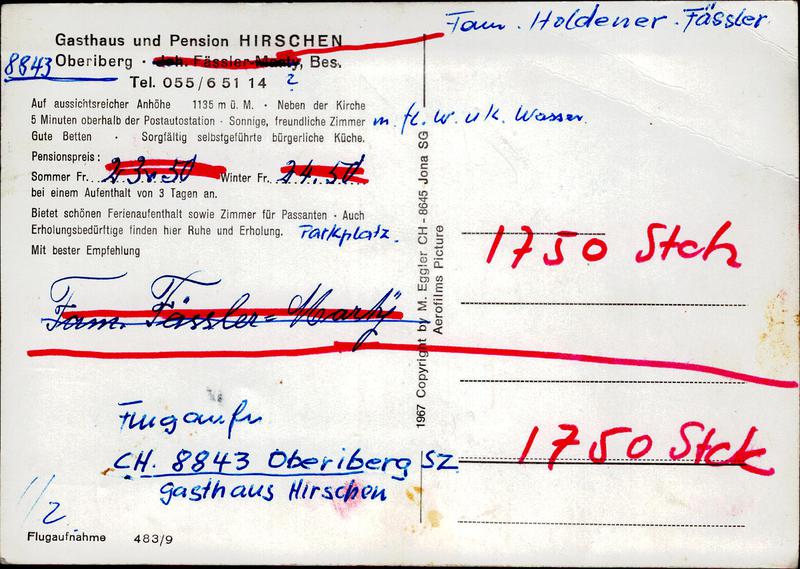 Fam. Holdener-Fässler
Gasthaus und Pension HIRSCHEN
8843 Oberiberg · Joh. Fässler-Marty, Bes.
Tel. 055/6 51 14 ?
Auf aussichtsreicher Anhöhe 1135 m ü. M. · Neben der Kirche
5 Minuten oberhalb der Postautostation · Sonnige, freundliche Zimmer m. fl. W. u k. Wasser.
Gute Betten · Sorgfältig selbstgeführte bürgerliche Küche.
Pensionspreis:
Sommer Fr. 23.50 Winter Fr. 24.50
bei einem Aufenthalt von 3 Tagen an.
Bietet schönen Ferienaufenthalt sowie Zimmer für Passanten · Auch
Erholungsbedürftige finden hier Ruhe und Erholung. Parkplatz.
Mit bester Empfehlung
Fam. Fässler-Marty
1967 Copyright by M. Eggler CH - 8645 Jona SG
Aerofilms Picture
1750 Stck
1750 Stck
Flugaufn
CH. 8843 Oberiberg SZ
Gasthaus Hirschen
1/2
Flugaufnahme 483/9